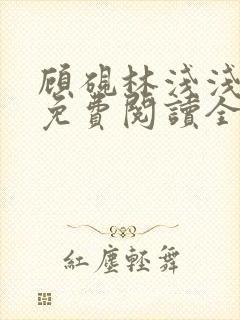 顧硯林淺淺
免費閱讀全
紅塵輕舞